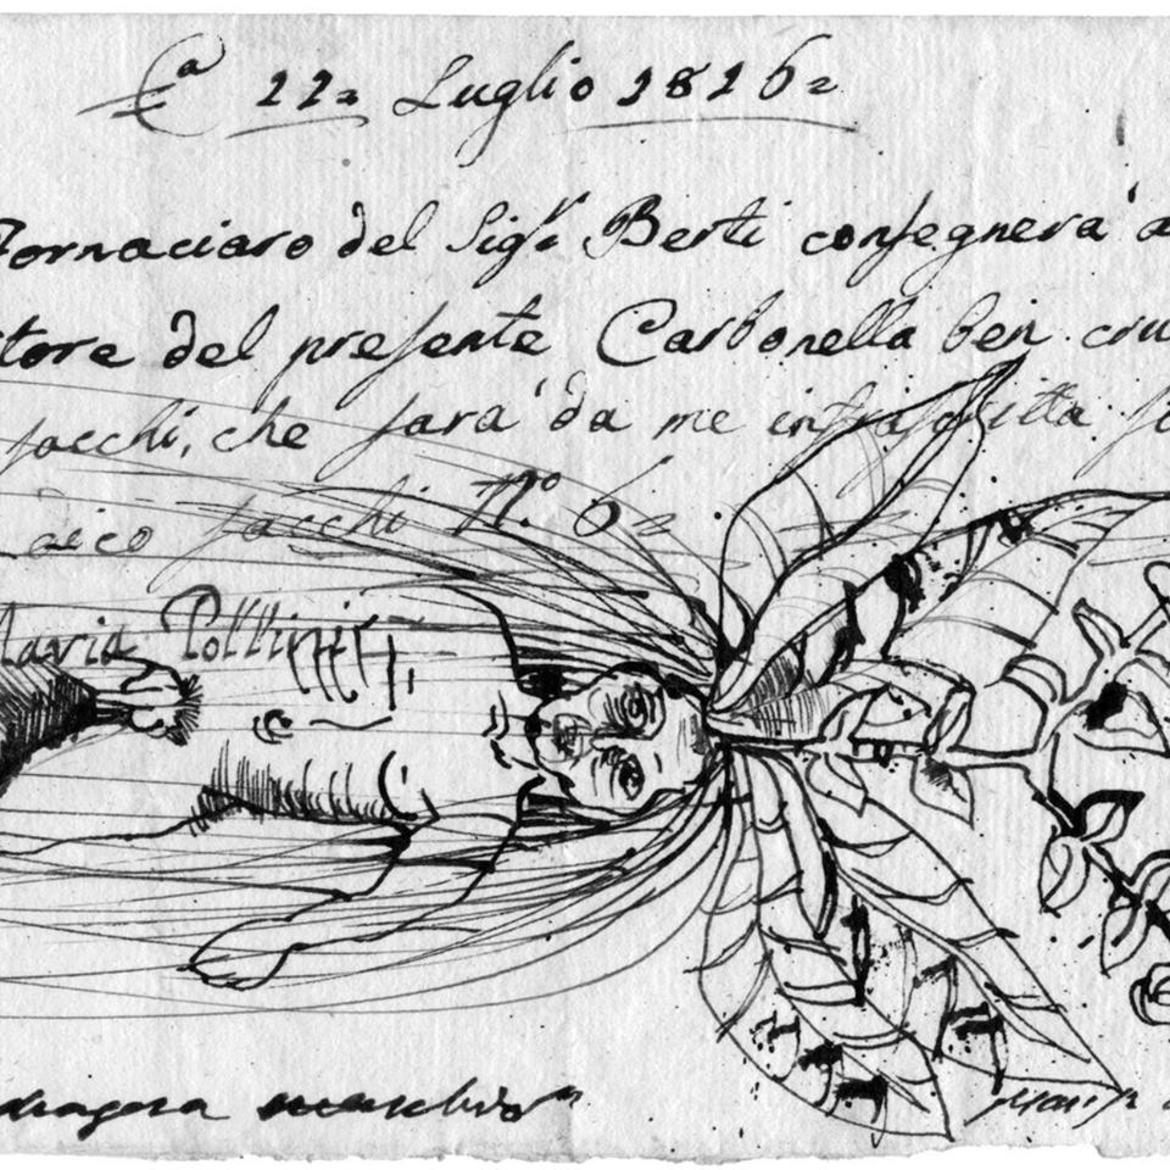 22= Luglio 1816=
Fornaciaro del Sigr. Berti consegnerà a
tore del presente Carbonella ben cru
sacchi, che sarà da me infrascitta
dico sacchi N.º 6=
Maria Pollini
dragora maschio"